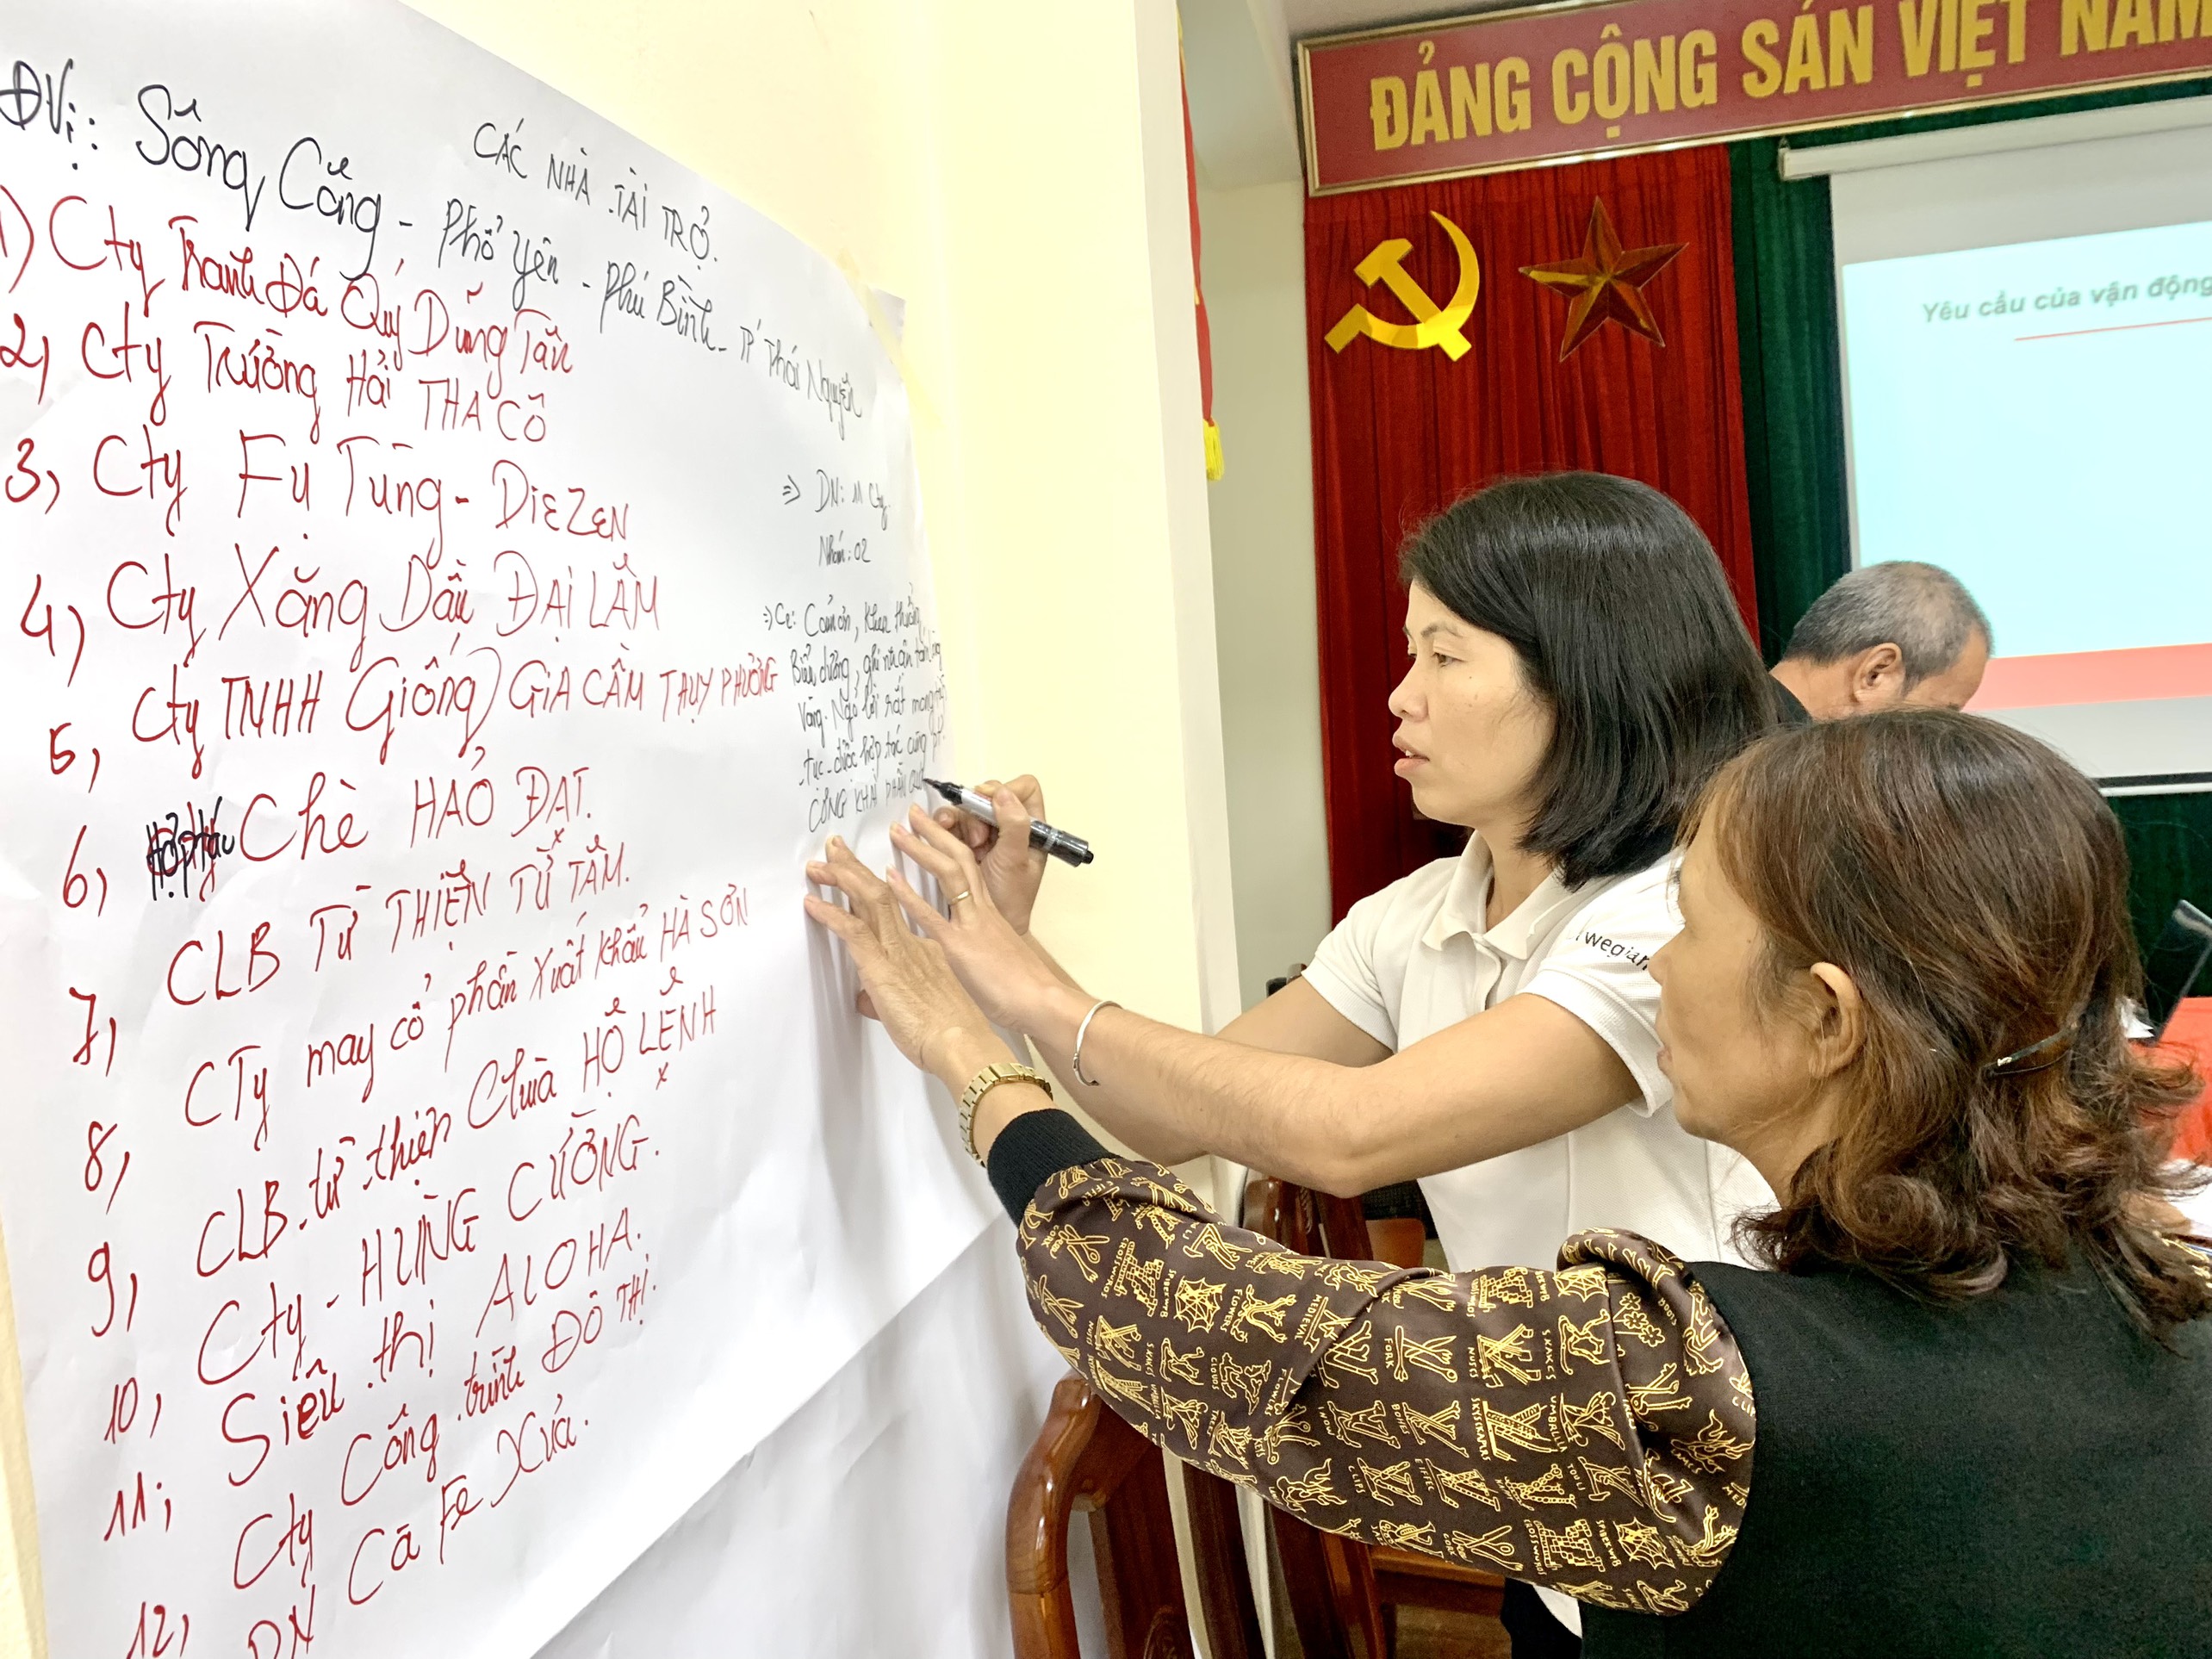 CÁC NHÀ TÀI TRỢ.
ĐVị: Sông Công - Phổ Yên - Phú Bình - TP Thái Nguyên
1) Cty Tranh Đá Quý Dũng Tân
2, Cty Trường Hải THA CÔ
3, Cty Fụ Tùng - DIEZEN
4, Cty Xăng Dầu ĐẠI LÂM
5, Cty TNHH Giống GIA CẦM THỤY PHƯƠNG
6, Chè HẢO ĐẠT.
7, CLB TỪ THIỆN TỪ TÂM.
8, CTy may cổ phần xuất khẩu HÀ SƠN
9, CLB từ thiện Chùa HỘ LỆNH
10, Cty - HÙNG CƯỜNG.
11; Siêu thị ALOHA.
12, Cty Công trình ĐÔ THỊ.
DN Cà Fê Xưa.
=> DN: 11 Cty.
Nhóm: 02
=> Cảm ơn, khen thưởng
Biểu dương, ghi nhận tấm
Vàng. Ngỏ lời rất mong
tục được hợp tác cùng
CÔNG KHAI
ĐẢNG CỘNG SẢN VIỆT NAM
Yêu cầu của vận động
wegian